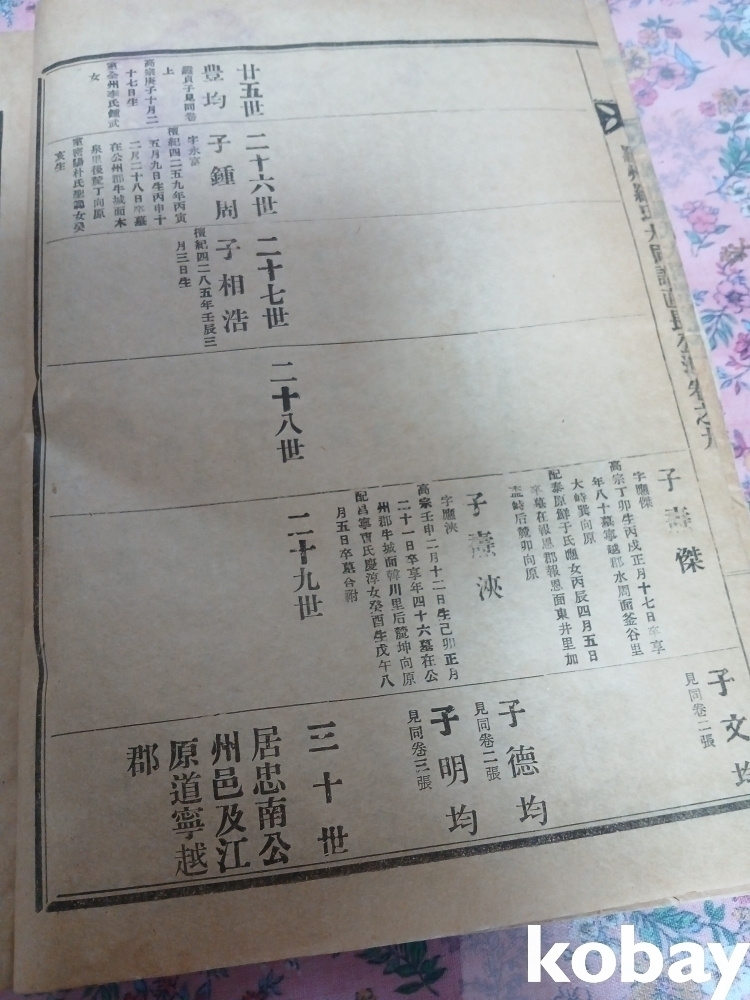 子壽傑
字應傑
高宗丁卯生丙戌正月十七日卒享
年八十墓寧越郡水周面釜谷里
大峙巽向原
配泰原鮮于氏 女丙辰四月五日
卒墓在報恩郡報恩面東井里加
峙后麓卯向原
子文均
見同卷二張
子壽浹
字應浹
高宗壬申二月十二日生己卯正月
二十一日卒享年四十六墓在公
州郡牛城面韓川里后麓坤向原
配昌寧曺氏慶淳女癸酉生戊午八
月五日卒墓合祔
子德均
見同卷二張
子明均
見同卷三張
廿五世
二十六世
二十七世
二十八世
二十九世
三十世
豊均
貞子見同卷
上
高宗庚子十月二
十七日生
室全州李氏鍾武
女
子鍾周
字永富
檀紀四二五九年丙寅
五月九日生丙申十
二月二十八日卒墓
在公州郡牛城面木
泉里後麓丁向原
室密陽朴氏聖錦女癸
亥生
子相浩
檀紀四二八五年壬辰三
月三日生
居忠南公
州邑及江
原道寧越
郡
kobay